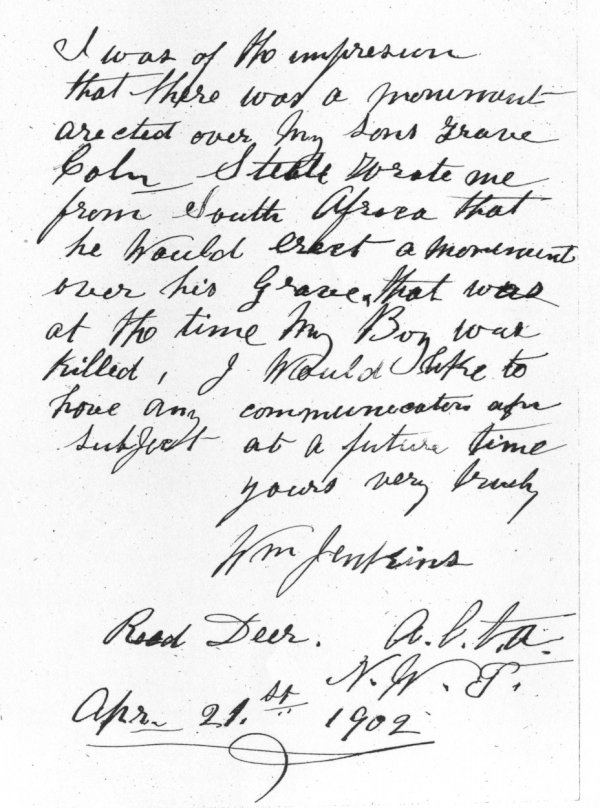 I was of the impresion
that there was a monument
arected over My Sons Grave
Coln Steele Wrote me
from South Africa that
he Would erect a monument
over his Grave, that was
at the time My Boy was
Killed, I Would like to
have any communication
subject at a future time
yours very truly
Wm Jenkins
Read Deer. A.l.t.a.
N.W.T.
Apr. 21.st 1902